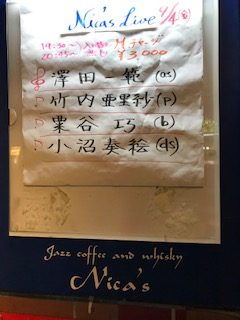 Nica's Live 4/4(金)
19:30〜 入替無 Mチャージ
20:45〜 ¥3,000
澤田一範 (as)
竹内亜里紗 (p)
粟谷巧 (b)
小沼奏絵 (ds)
Jazz coffee and whisky
Nica's